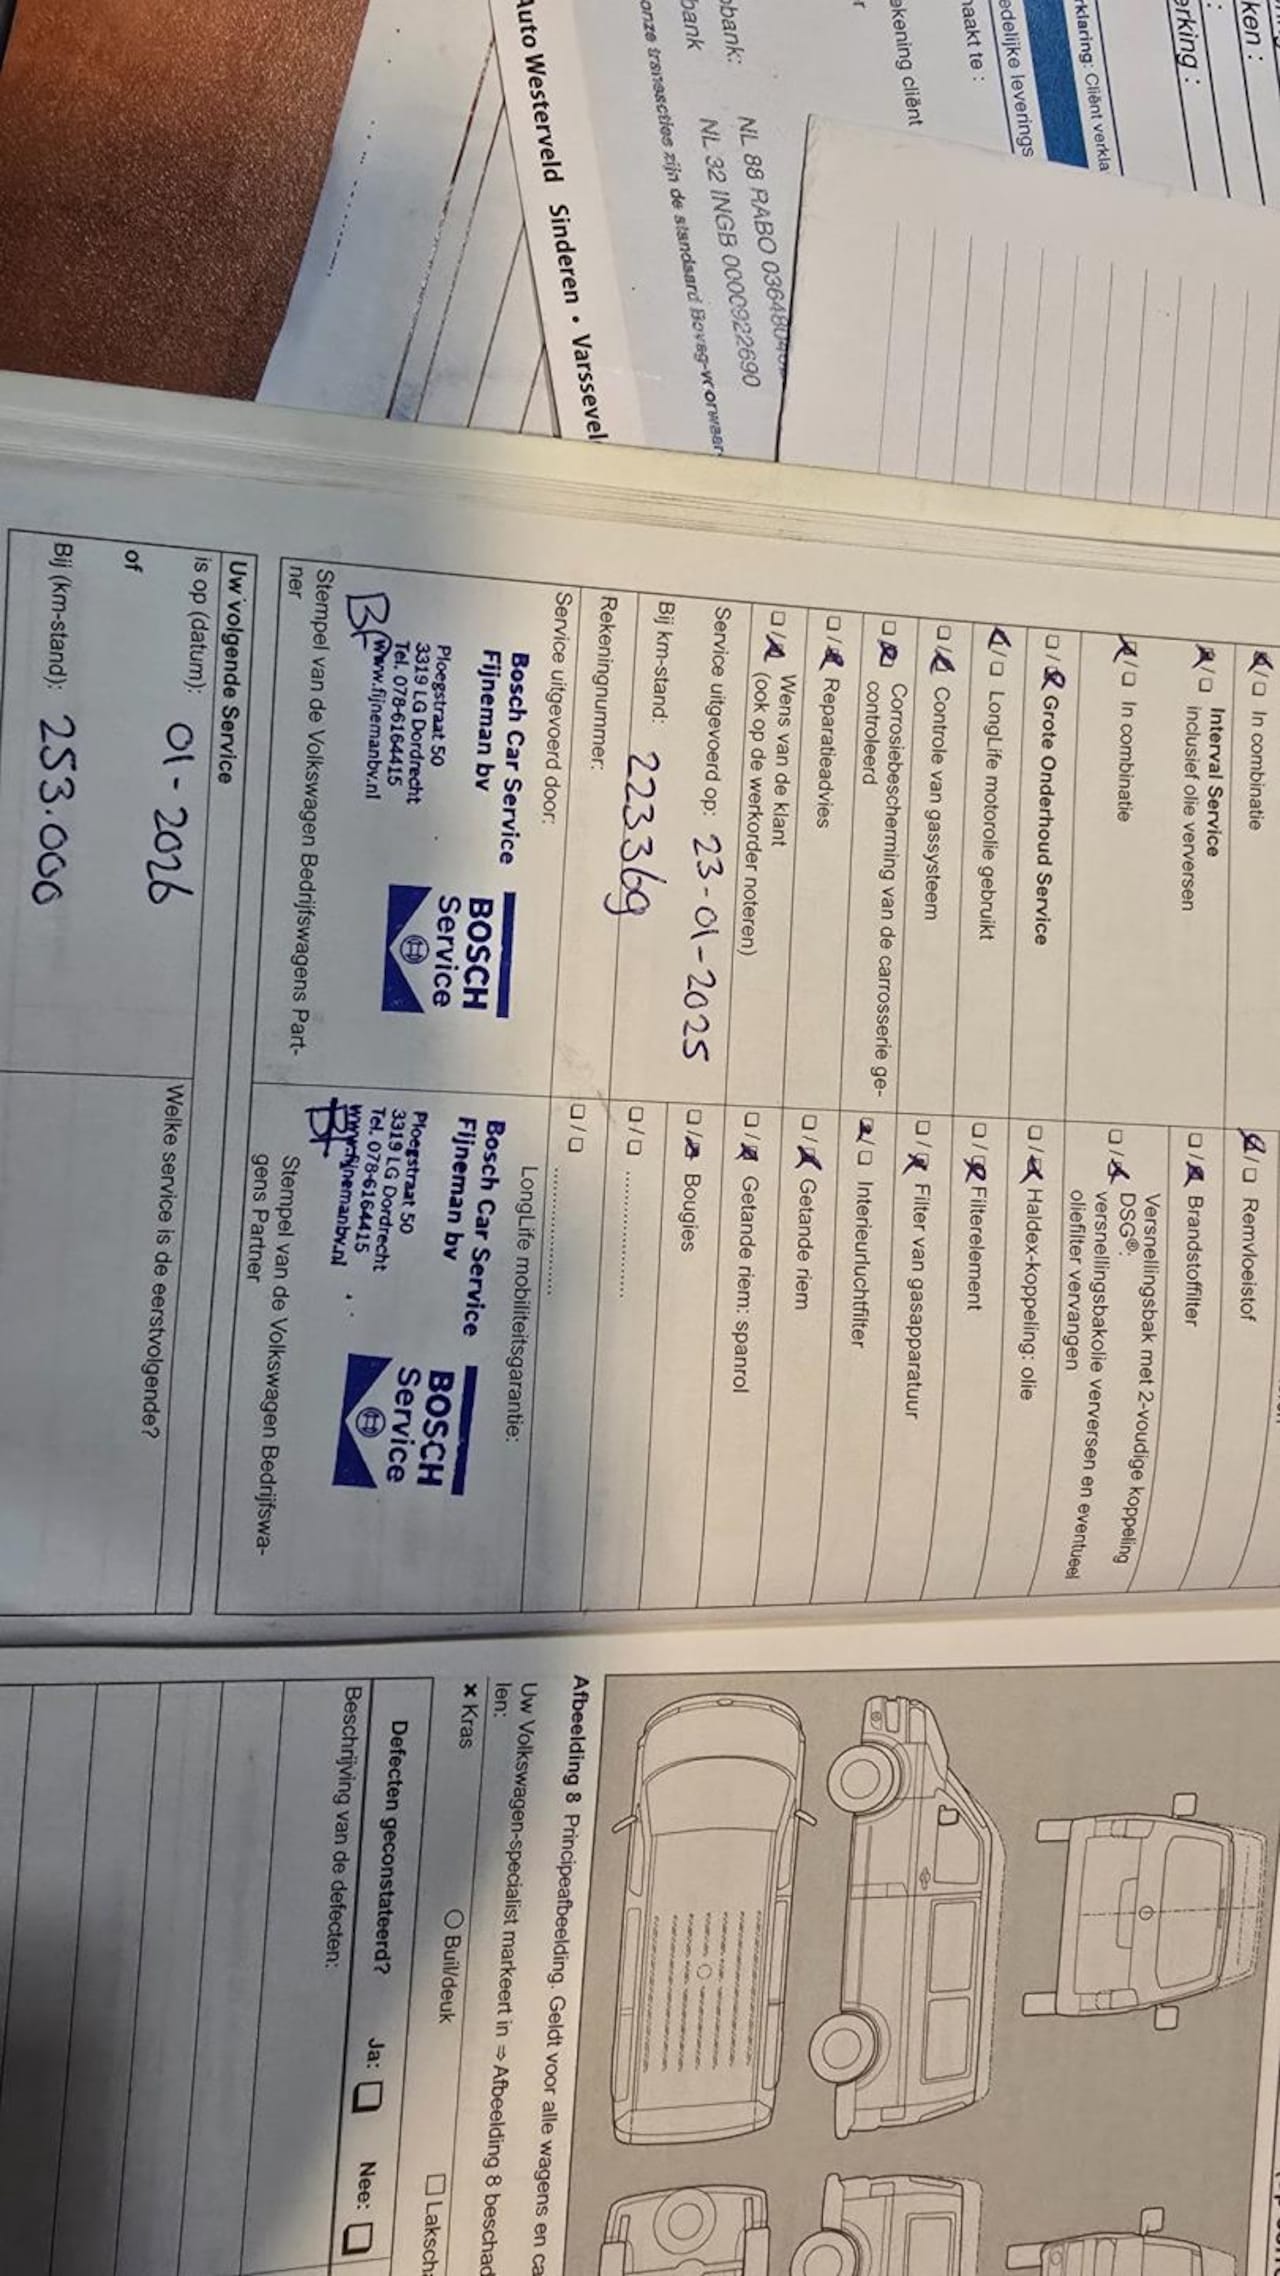 ken :
erking :
rklaring: Cliënt verkla
edelijke leverings
naakt te :
ekening cliënt
obank: NL 88 RABO 03648
bank NL 32 INGB 0000922690
onze transacties zijn de standaard Bovag-vorwaar
Auto Westerveld Sinderen • Varssevel
☒/☐ In combinatie
☒/☐ Interval Service
inclusief olie verversen
☒/☐ In combinatie
☐/☒ Grote Onderhoud Service
☒/☐ LongLife motorolie gebruikt
☐/☒ Controle van gassysteem
☐/☒ Corrosiebescherming van de carrosserie ge-
controleerd
☐/☒ Reparatieadvies
☐/☒ Wens van de klant
(ook op de werkorder noteren)
Service uitgevoerd op: 23-01-2025
Bij km-stand: 223369
Rekeningnummer:
Service uitgevoerd door:
Bosch Car Service
Fijneman bv
Ploegstraat 50
3319 LG Dordrecht
Tel. 078-6164415
www.fijnemanbv.nl
BOSCH
Service
BF
Stempel van de Volkswagen Bedrijfswagens Part-
ner
☒/☐ Remvloeistof
☐/☒ Brandstoffilter
Versnellingsbak met 2-voudige koppeling
☐/☒ DSG®:
versnellingsbakolie verversen en eventueel
oliefilter vervangen
☐/☒ Haldex-koppeling: olie
☐/☒ Filterelement
☐/☒ Filter van gasapparatuur
☒/☐ Interieurluchtfilter
☐/☒ Getande riem
☐/☒ Getande riem: spanrol
☐/☒ Bougies
☐/☐ ................
☐/☐ ................
LongLife mobiliteitsgarantie:
Bosch Car Service
Fijneman bv
Ploegstraat 50
3319 LG Dordrecht
Tel. 078-6164415
www.fijnemanbv.nl
BOSCH
Service
BF
Stempel van de Volkswagen Bedrijfswa-
gens Partner
Uw volgende Service
is op (datum): 01-2026
of
Bij (km-stand): 253.000
Welke service is de eerstvolgende?
Afbeelding 8 Principeafbeelding. Geldt voor alle wagens en ca
Uw Volkswagen-specialist markeert in ⇒ Afbeelding 8 beschad
len:
× Kras
○ Buil/deuk
☐ Laksch
Defecten geconstateerd? Ja: ☐ Nee: ☐
Beschrijving van de defecten: